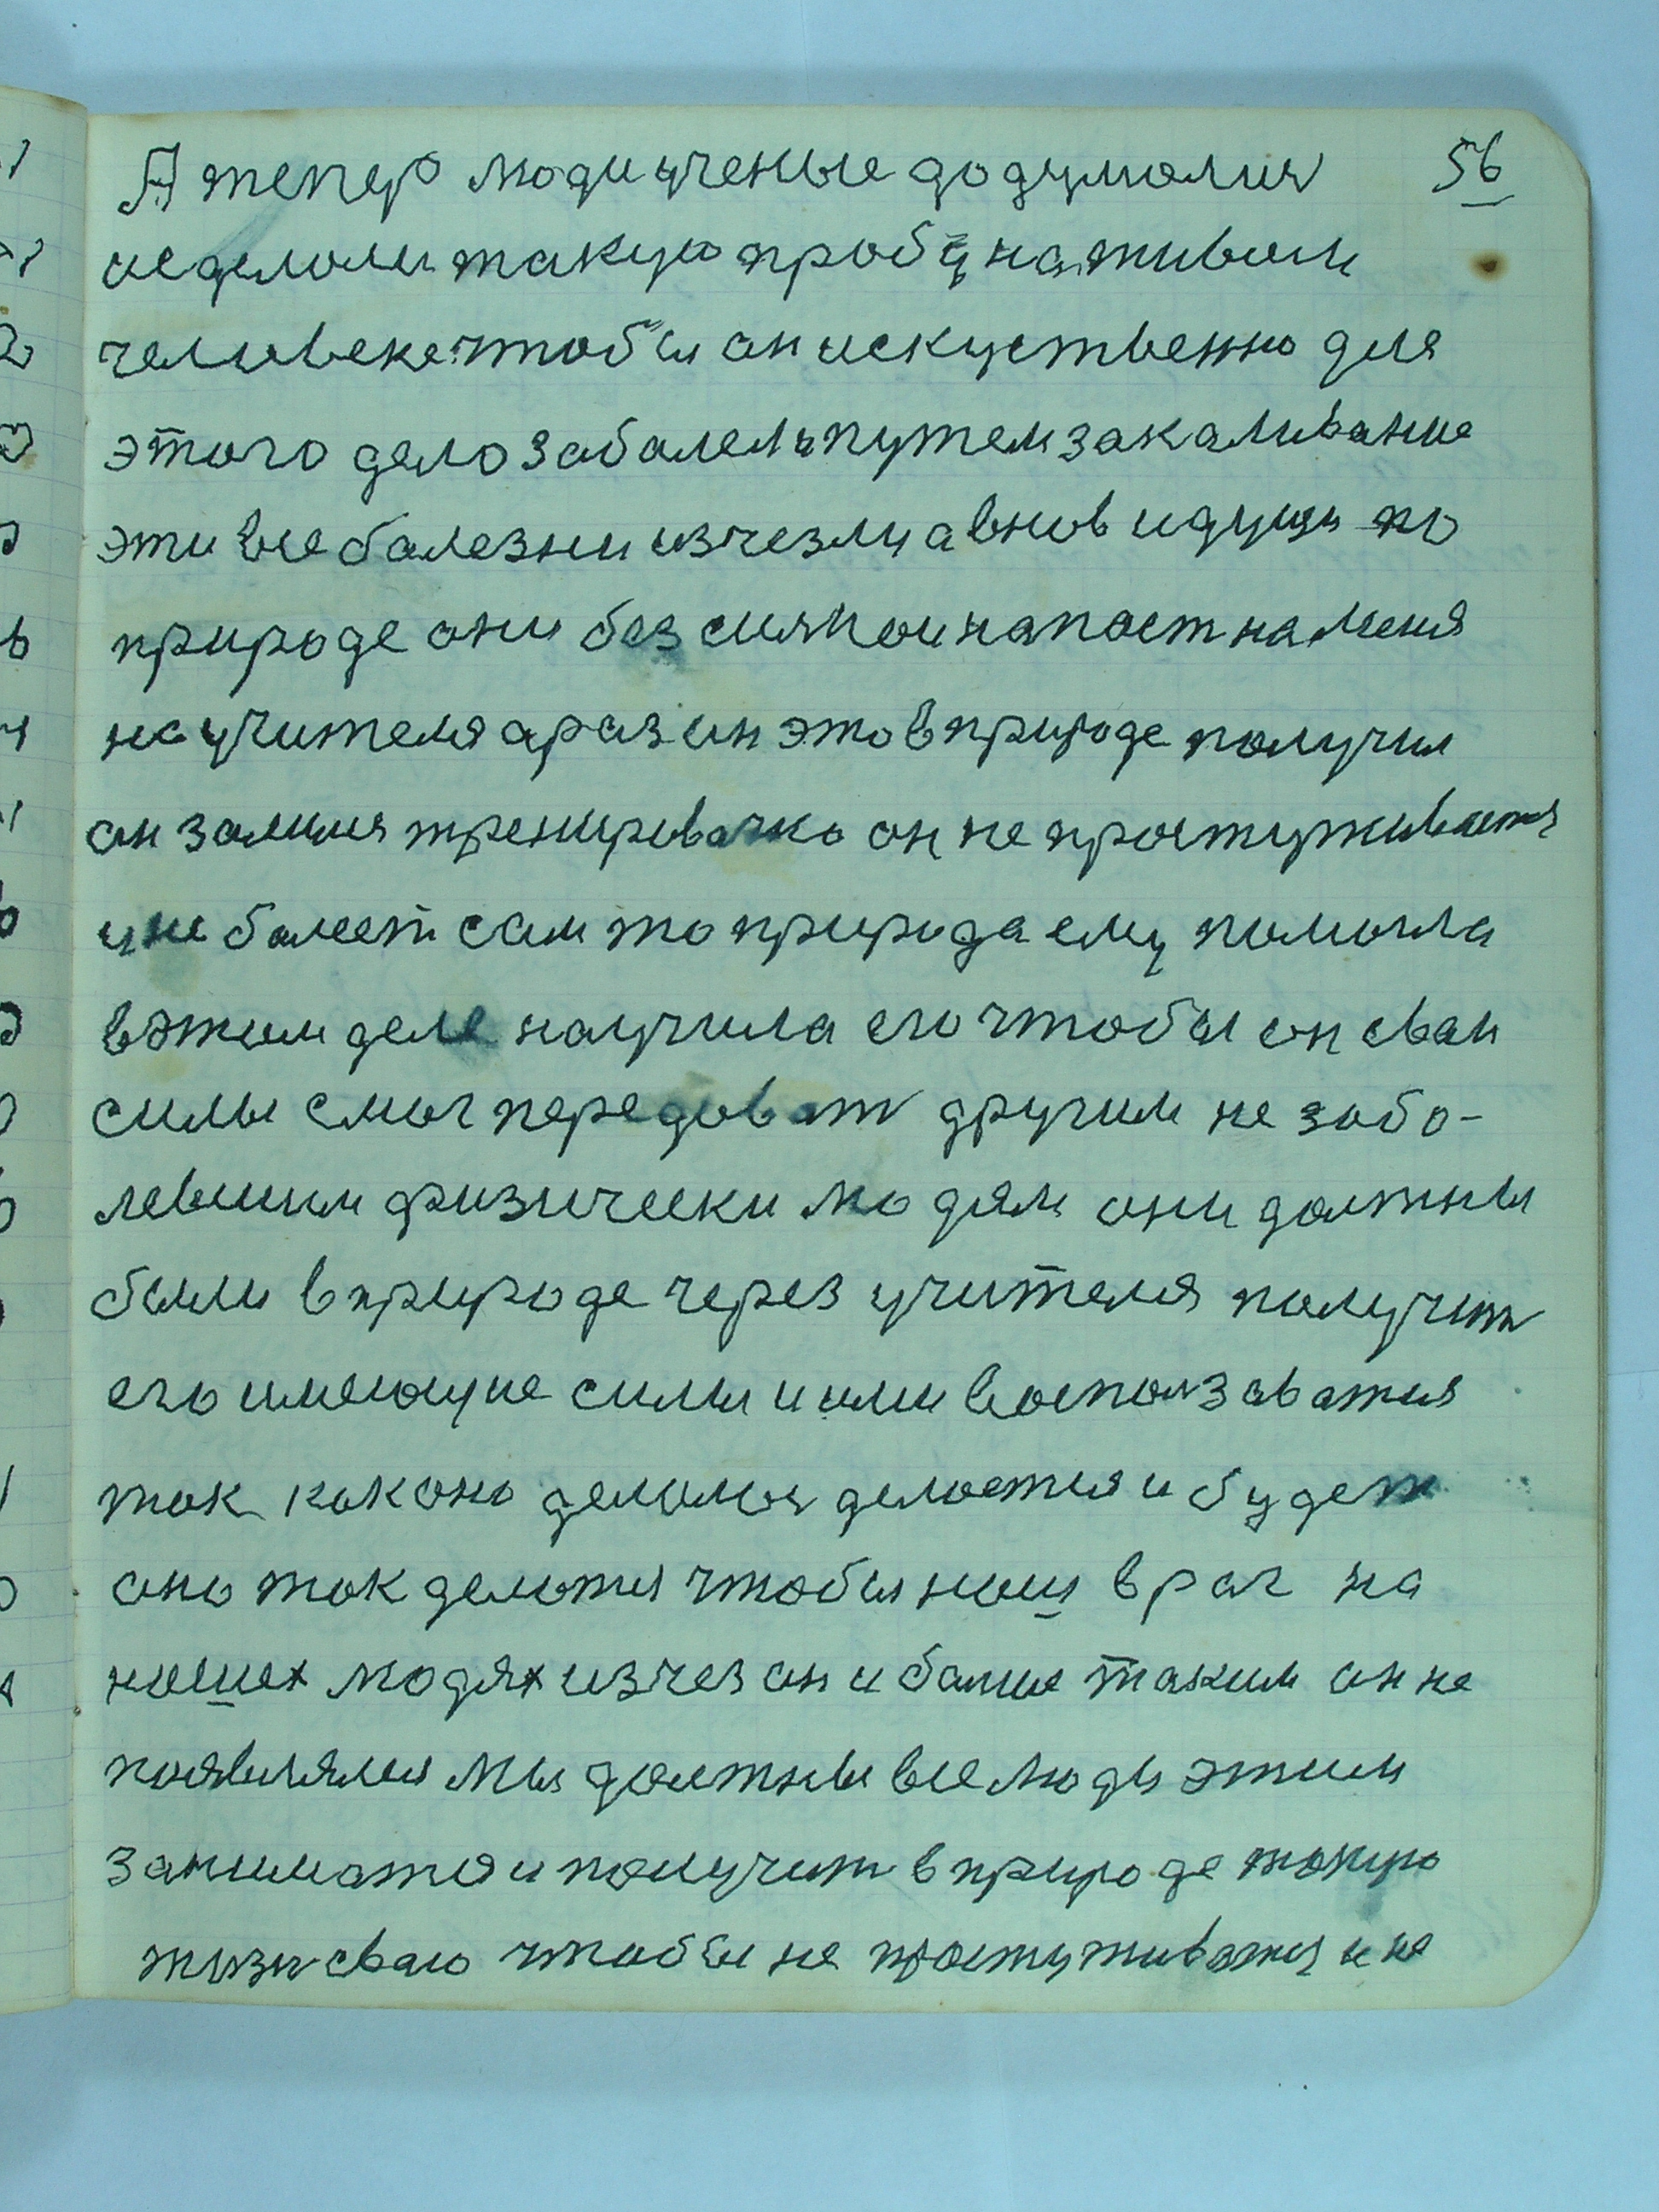 А тепер люди ученые додумалися 56
исделали такую пробу на живом
человеке чтобы он искуственно для
этого дело заболель путем закаливание
эти все болезни изчезли а вновь идущи по
природе они без сильнои напаст на меня
на учителя а раз он это в природе получил
он занялся тренировачко он не простуживается
и не болеет сам то природа ему помогла
в этом деле научила его чтобы он сваи
силы смог передоват другим не забо-
левшим физически людям они должны
были в природе через учителя получит
его имеющие силы и ими воспользаватся
так как оно делалос делается и будет
оно так делатся чтобы наш враг на
наших людях изчез он и балше таким он не
появлялся мы должны все люди этим
заниматся и получит в природе такую
жизн сваю чтобы не простуживатся и не